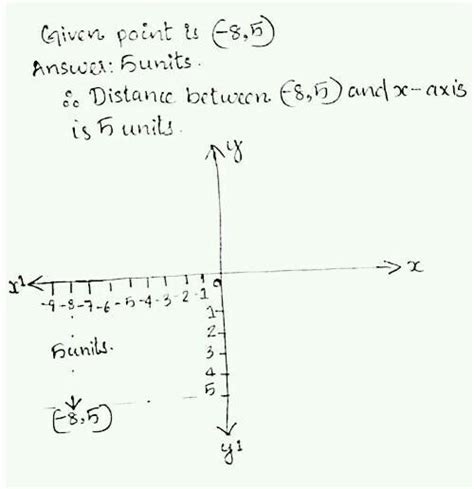 Given point is (-8,5)
Answer: 5units.
∴ Distance between (-8,5) and x-axis
is 5 units.
y
x1 -9 -8 -7 -6 -5 -4 -3 -2 -1 0 x
1
2
5units. 3
4
5
(-8,5)
y1